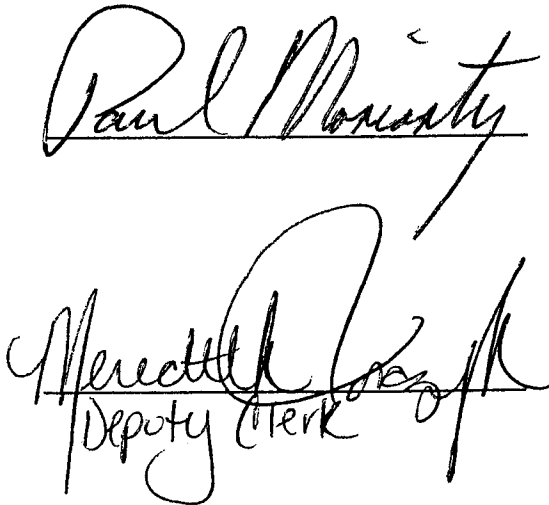 Paul Moriarty
Meredith
Deputy Clerk